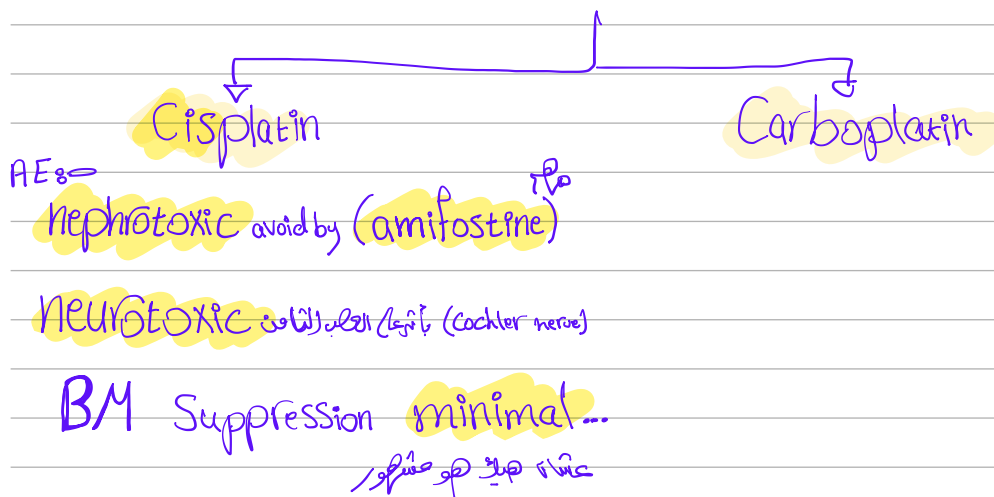 Cisplatin Carboplatin
AE:-
مهم
nephrotoxic avoid by (amifostine)
neurotoxic بأثر على العصب الثامن (Cochler nerve)
BM Suppression minimal...
عشان هيك هو مشهور